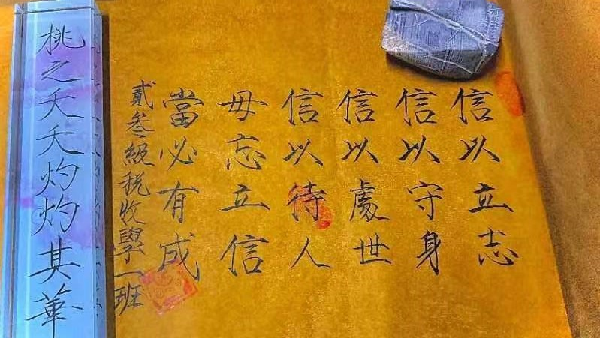 信以立志
信以守身
信以處世
信以待人
毋忘立信
當必有成
貳叁級稅收學一班
桃之夭夭灼灼其華